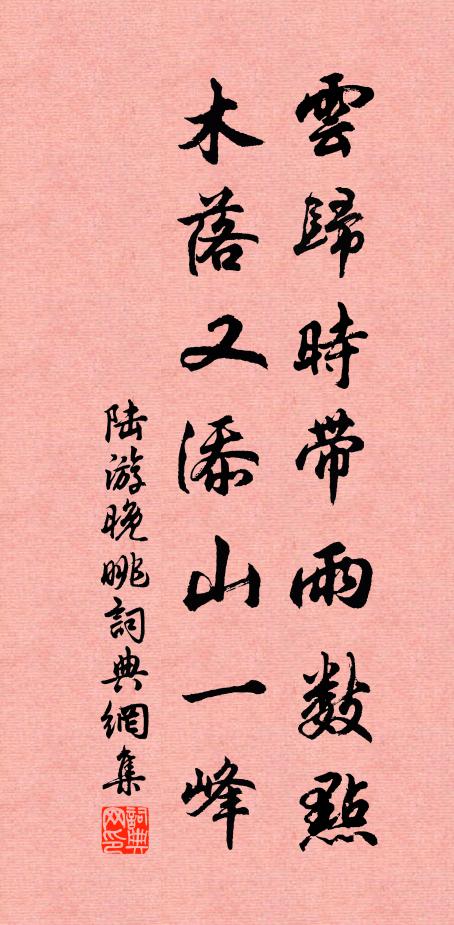 雲歸時带雨數點
木落又添山一峰
陆游晚眺詞典網集
詞典网印